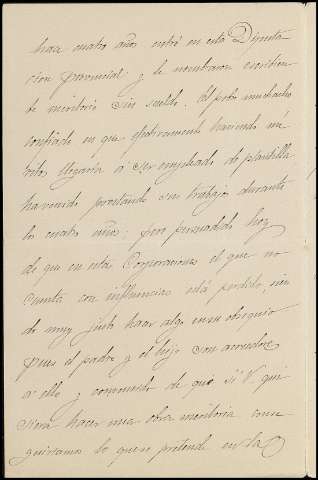 hace cuatro años entró en esta Diputa
cion provincial y le nombraron escribien
te meritorio sin sueldo. El pobre muchacho
confiado en que efectivamente haciendo mé
ritos llegaria á ser empleado de plantilla
ha venido prestando sus trabajos durante
los cuatro años; pero persuadido hoy
de que en estas Corporaciones el que no
cuenta con influencias está perdido, sien
do muy justo hacer algo en su obsequio
pues el padre y el hijo son acreedores
á ello y convencido de que si V. qui
siera hacer una obra meritoria conse
guiriamos lo que se pretende en la